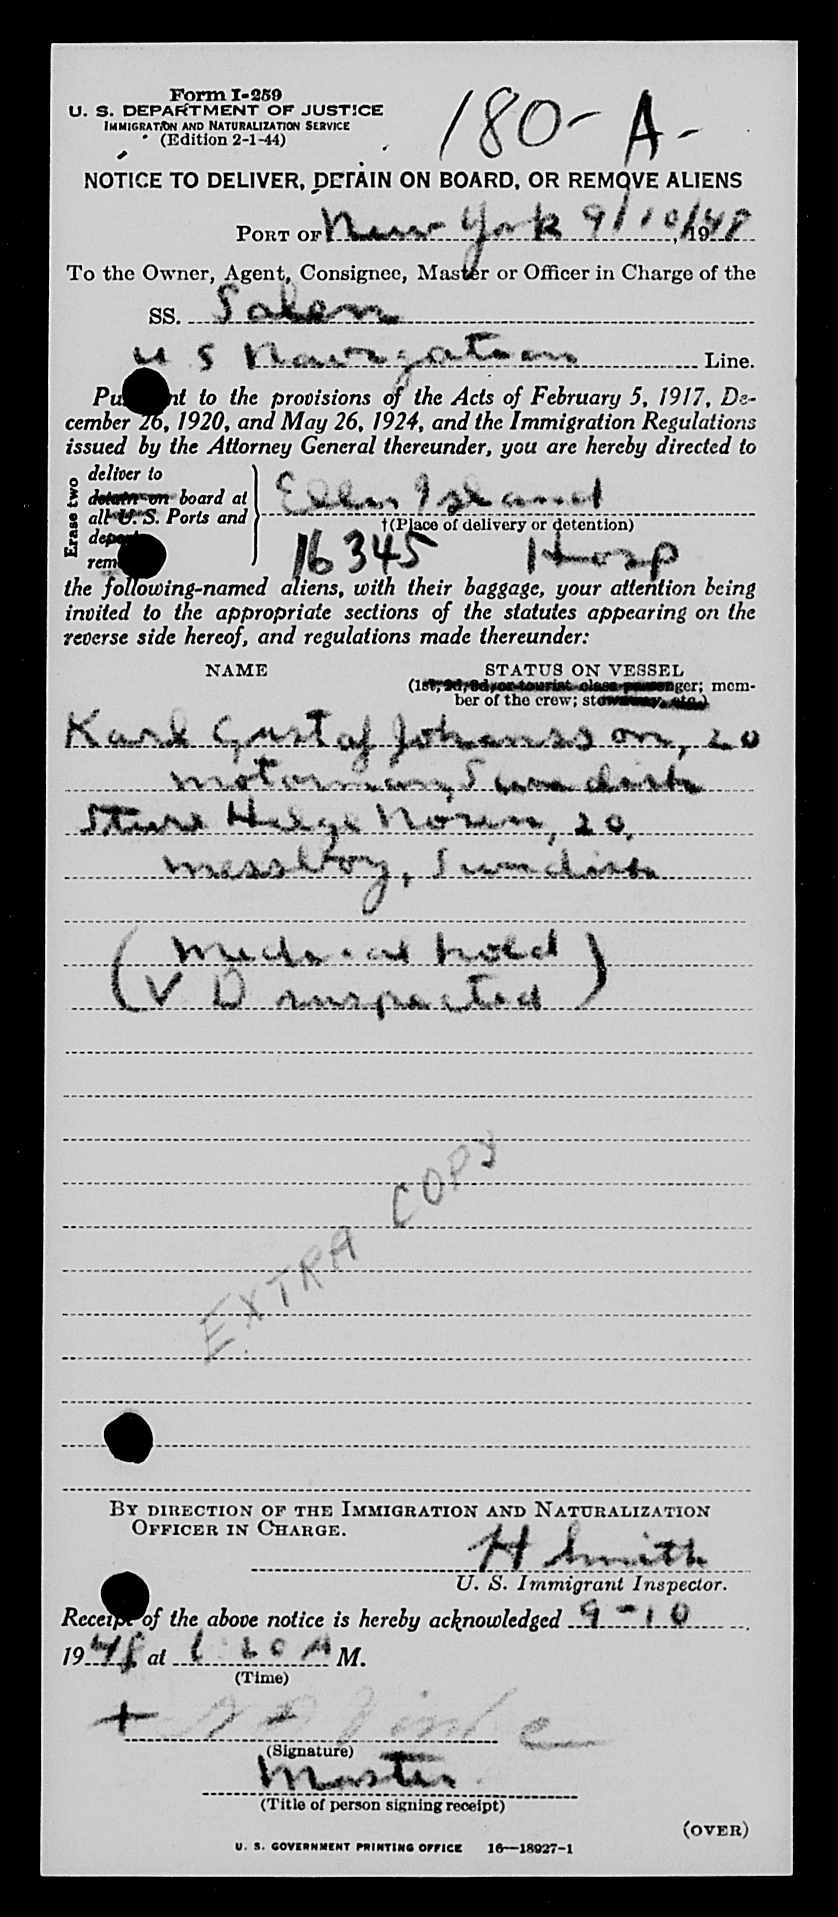 Form I-259
U. S. DEPARTMENT OF JUSTICE
IMMIGRATION AND NATURALIZATION SERVICE
(Edition 2-1-44)
180-A-
NOTICE TO DELIVER, DETAIN ON BOARD, OR REMOVE ALIENS
PORT OF New York 9/10/48, 19
To the Owner, Agent, Consignee, Master or Officer in Charge of the
SS. Salen
U S Navigation Line.
Pu nt to the provisions of the Acts of February 5, 1917, De-
cember 26, 1920, and May 26, 1924, and the Immigration Regulations
issued by the Attorney General thereunder, you are hereby directed to
Erase two
deliver to
detain on board at
all U. S. Ports and
Ellis Island
†(Place of delivery or detention)
16345 Hosp
the following-named aliens, with their baggage, your attention being
invited to the appropriate sections of the statutes appearing on the
reverse side hereof, and regulations made thereunder:
NAME STATUS ON VESSEL
(1st, 2d, 3d, or tourist class passenger; mem-
ber of the crew; stowaway, etc.)
Karl Gustaf Johansson, 20
motorman, Swedish
Sture Helge Noren, 20,
messboy, Swedish
(Medical hold)
(V D suspected)
EXTRA COPY
BY DIRECTION OF THE IMMIGRATION AND NATURALIZATION
OFFICER IN CHARGE.
H Smith
U. S. Immigrant Inspector.
Receipt of the above notice is hereby acknowledged 9-10
1948 at M.
(Time)
+
(Signature)
Master
(Title of person signing receipt)
(OVER)
U. S. GOVERNMENT PRINTING OFFICE 16—18927-1